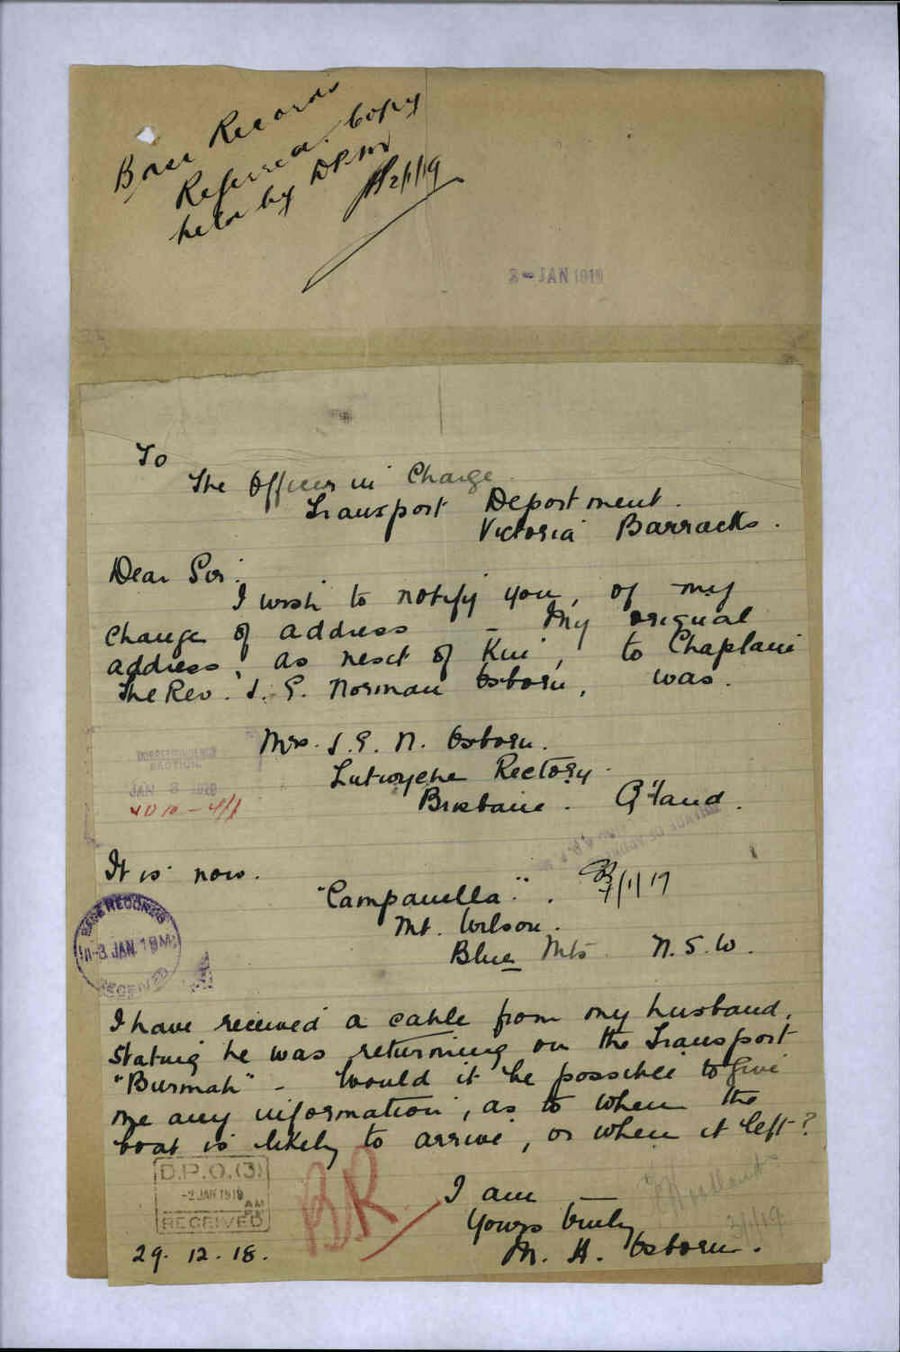 Base Records
Referred. Copy
held by DPM
2/1/19
2-JAN 1919
To
The Officer in Charge
Transport Department.
Victoria Barracks.
Dear Sir.
I wish to notify you, of my
change of address - My original
address, as next of Kin, to Chaplain
The Rev. J. E. Norman Osborn, was.
Mrs. J. E. N. Osborn.
Lutwyche Rectory.
Brisbane. Q'land.
CORRESPONDENCE
SECTION
JAN 3 1919
It is now.
"Campanella".
Mt. Wilson.
Blue Mts N.S.W.
BASE RECORDS
3 JAN 19
RECEIVED
I have received a cable from my husband,
stating he was returning on the Transport
"Burmah" - Would it be possible to give
me any information, as to when the
boat is likely to arrive, or when it left?
D.P.O.(3)
-2 JAN 1919 AM
RECEIVED
BR
I am -
Yours truly
M. H. Osborn.
2/1/19
29.12.18.